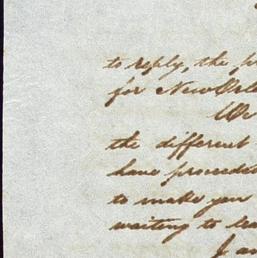 to reply, the
for New Orle
We
the different
have proceeded
to make you
waiting to
I am